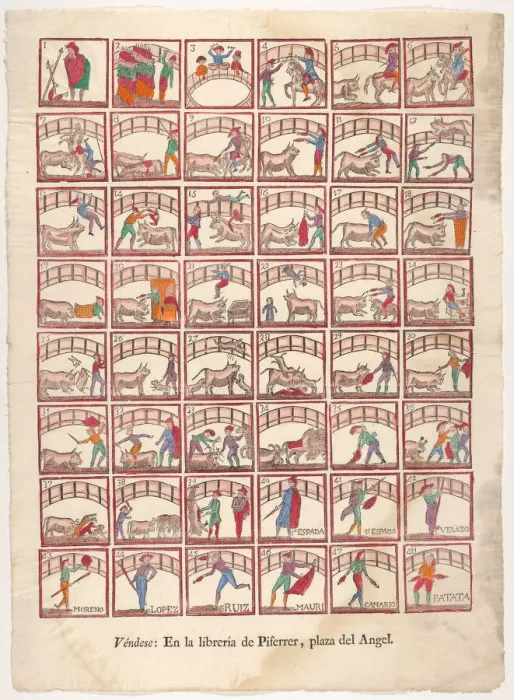 1 2 3 4 5 6
7 8 9 10 11 12
13 14 15 16 17 18
19 20 21 22 23 24
25 26 27 28 29 30
31 32 33 34 35 36
37 38 39 40 41 42
ESPADA 1ª ESPADA VELAZO
43 44 45 46 47 48
MORENO LOPEZ RUIZ MAURI CAMARIO PATATA
Véndese: En la librería de Piferrer, plaza del Angel.